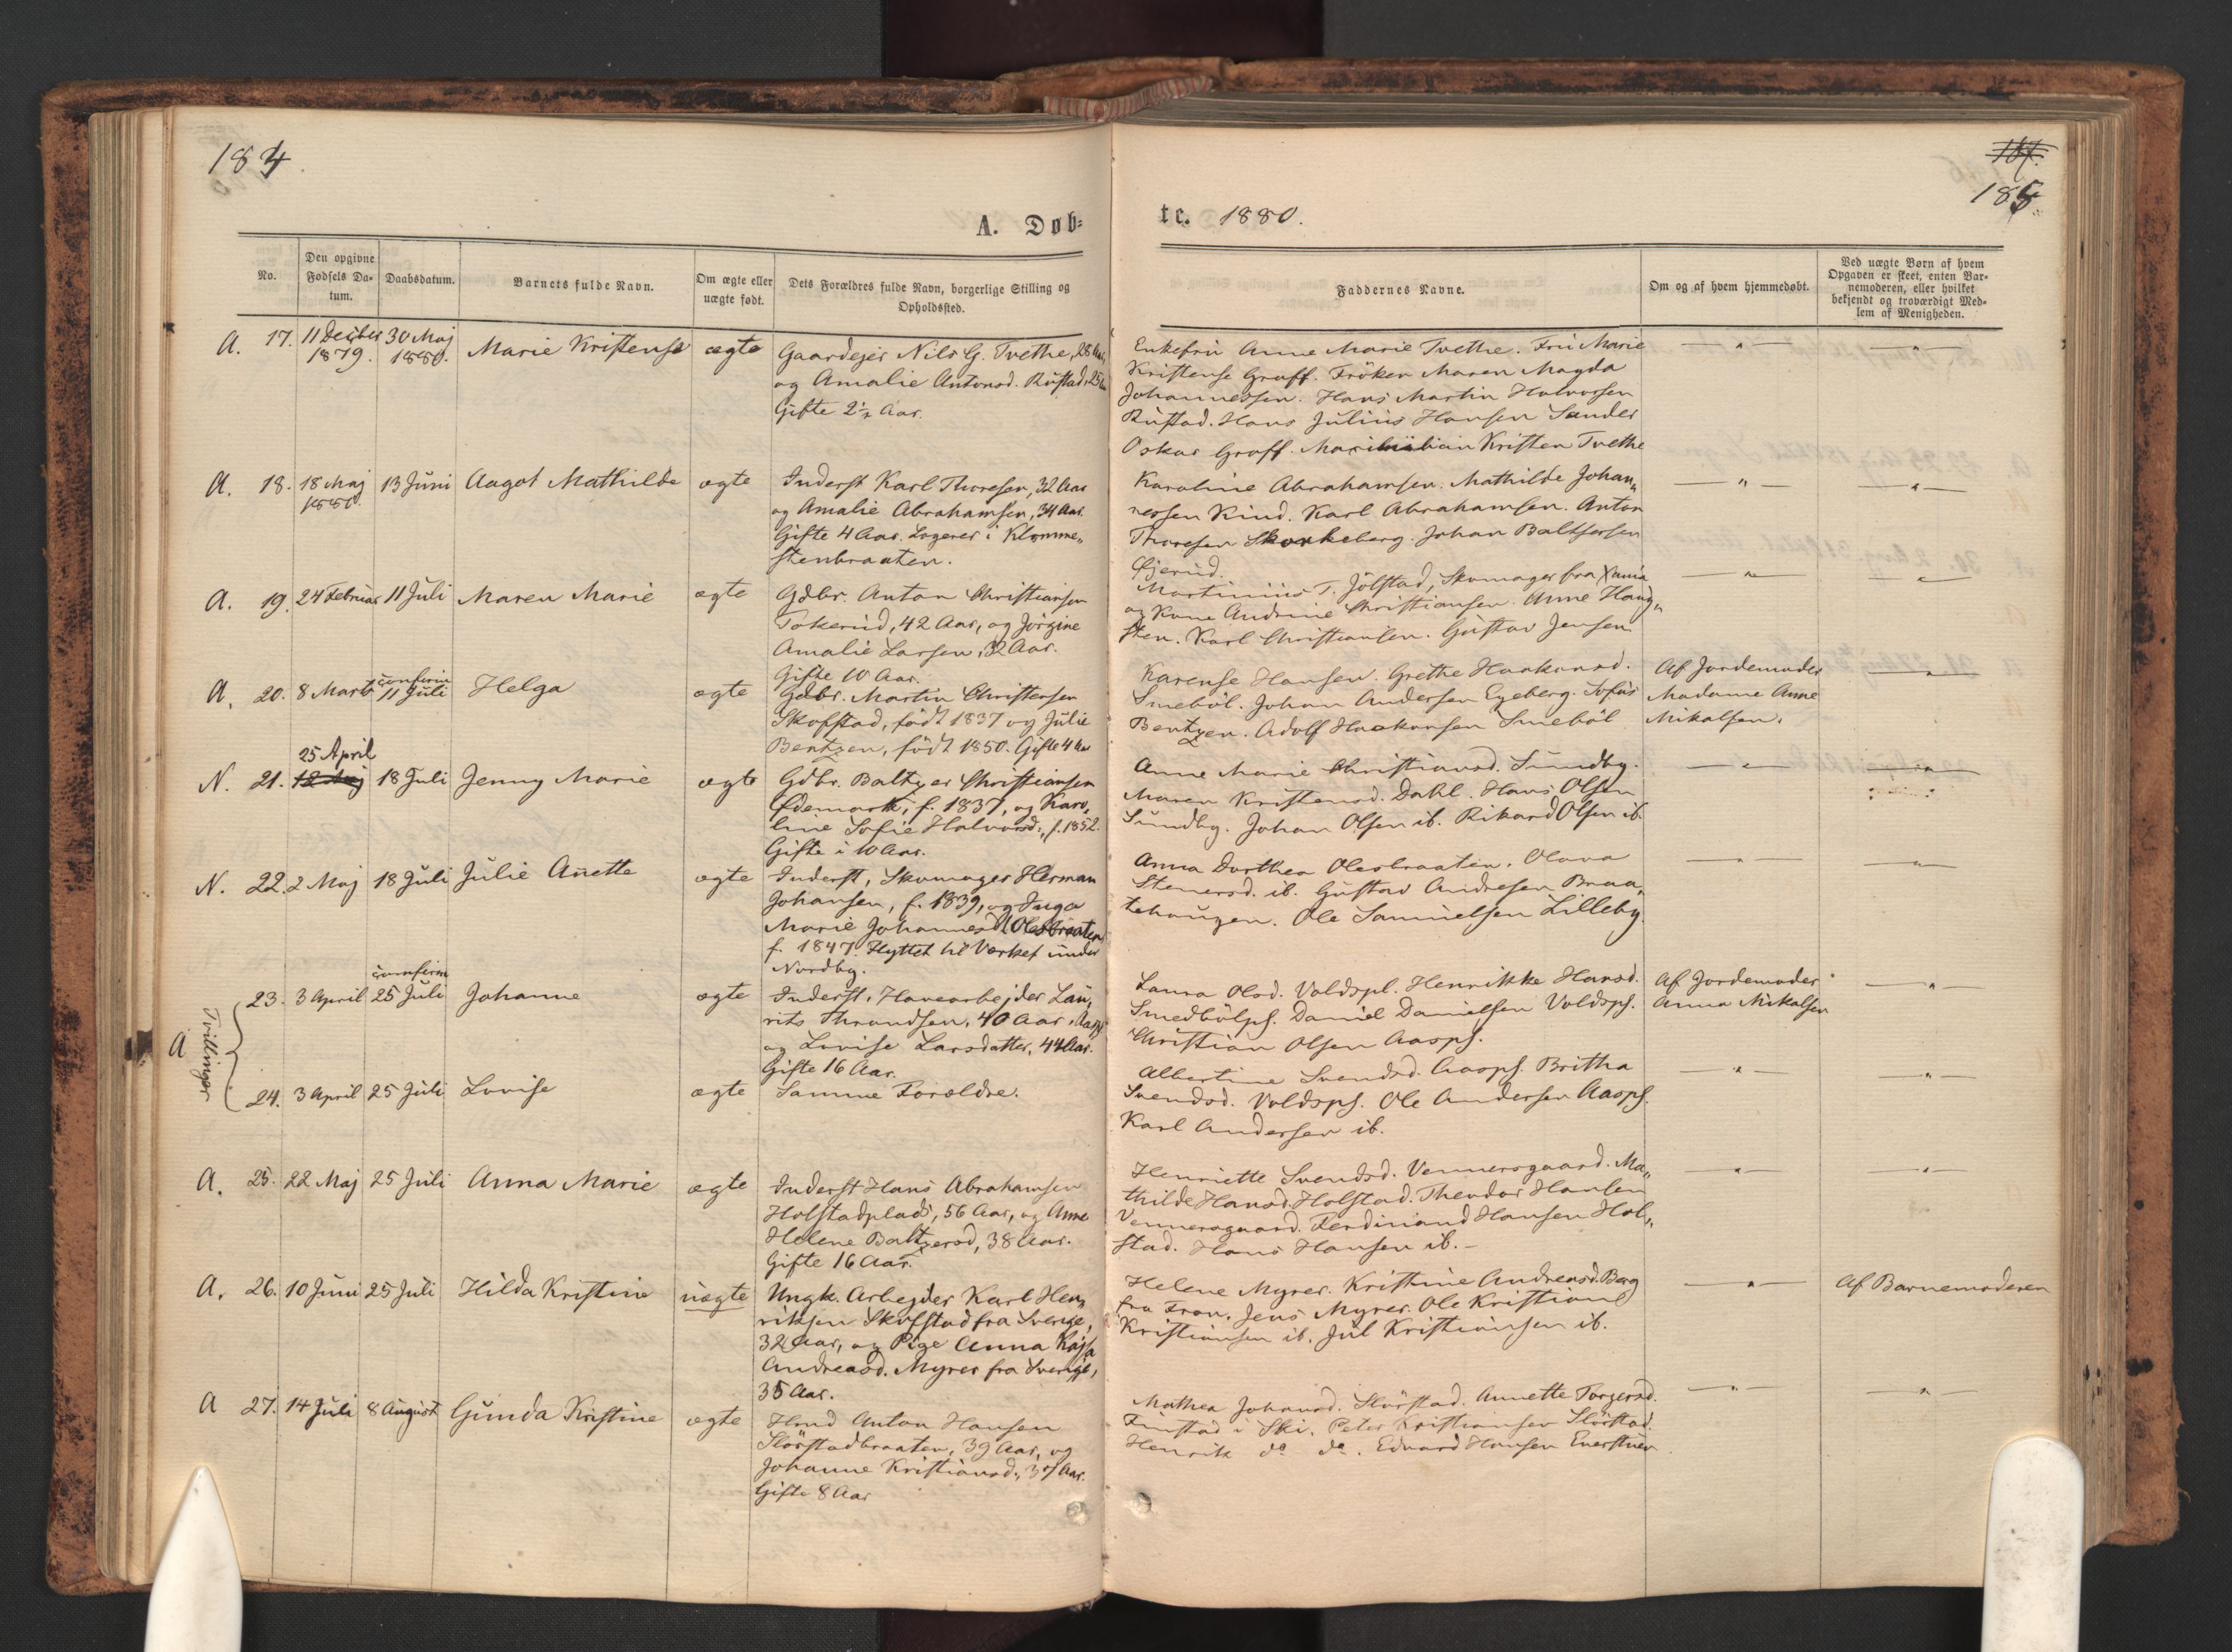 184
A. Døb-
No.
Den opgivne Fødsels Da-
tum.
Daabsdatum.
Barnets fulde Navn.
Om ægte eller
uægte født.
Dets Forældres fulde Navn, borgerlige Stilling og
Opholdssted.
A. 17. 11 Decbr 1879. 30 Maj 1880. Marie Kristense ægte Gaardejer Nils G. Tvethe, 28 Aar,
og Amalie Antonsd. Rustad, 25
Gifte 2½ Aar.
A. 18. 18 Maj 1880. 13 Juni Aagot Mathilde ægte Inderst Karl Thoresen, 32 Aar
og Amalie Abrahamsen, 34 Aar.
Gifte 4 Aar. Logerer i Klomme„
stenbraaten.
A. 19. 24 Februar 11 Juli Maren Marie ægte Gdbr. Anton Christiansen
Tokerud, 42 Aar, og Jörgine
Amalie Larsen, 32 Aar.
Gifte 10 Aar.
A. 20. 8 Marts confirm 11 Juli Helga ægte Gdbr. Martin Christensen
Skofstad, født 1837 og Julie
Bentzen, født 1850. Gifte 4 Aar
N. 21. 25 April 18 Juli Jenny Marie ægte Gdbr. Baltzer Christiansen
Ødemark, f. 1837, og Karo„
line Sofie Halvorsd., f. 1852.
Gifte i 10 Aar.
N. 22. 2 Maj 18 Juli Julie Anette ægte Inderst, Skomager Herman
Johansen, f. 1839, og Inga
Marie Johannesd. Olesbraaten
f. 1847. Flyttet til Værket under
Nordby.
A Tvillinger
23. 3 April confirm 25 Juli Johanne ægte Inderst, Havearbejder Lau„
rits Throndsen, 40 Aar, Aaspl
og Lovise Larsdatter, 44 Aar.
Gifte 16 Aar.
24. 3 April 25 Juli Lovise ægte Samme Forældre.
A. 25. 22 Maj 25 Juli Anna Marie ægte Inderst Hans Abrahamsen
Holstadplads, 56 Aar, og Anne
Helene Baltzersd, 38 Aar.
Gifte 16 Aar.
A. 26. 10 Juni 25 Juli Hilda Kristine uægte Ungk. Arbejder Karl Hen„
riksen Skofstad fra Sverige,
32 Aar, og Pige Anna Kajsa
Andreasd. Myrer fra Sverige,
35 Aar.
A 27. 14 Juli 8 August Gunda Kristine ægte Hmd Anton Hansen
Slörstadbraaten, 39 Aar, og
Johanne Kristiansd., 37 Aar.
Gifte 8 Aar
185
te. 1880.
Faddernes Navne.
Om og af hvem hjemmedøbt.
Ved uægte Børn af hvem
Opgaven er skeet, enten Bar-
nemoderen, eller hvilket
bekjendt og troværdigt Med-
lem af Menigheden.
Enkefru Anne Marie Tvethe. Fru Marie
Kristense Graff. Fröken Maren Magda
Johannessen. Hans Martin Halvorsen
Rustad. Hans Julius Hansen Sander
Oskar Graff. Maximilian Kristen Tvethe
Karoline Abrahamsen. Mathilde Johan„
nessen Kind. Karl Abrahamsen. Anton
Thoresen Skorkeberg. Johan Balthersen
Gjerud.
Martinius T. Jölstad, Skomager fra Xania
og Kone Andrine Christiansen. Anne Haug„
sten. Karl Christiansen. Gustav Jensen
Karense Hansen. Grethe Haakonsd. Af Jordemoder
Smeböl. Johan Andersen Egeberg. Sofus Madame Anne
Bentzen. Adolf Haakonsen Smeböl Mikalsen.
Anne Marie Christiansd. Sundby.
Maren Kristensd. Dahl. Hans Olsen
Sundby. Johan Olsen ib. Rikard Olsen ib.
Anna Dorthea Olesbraaten. Olava
Stenersd. ib. Gustav Andresen Braa„
tehaugen. Ole Samuelsen Lilleby.
Laura Olsd. Voldspl. Henrikke Hansd. Af Jordemoder
Smedbölpl. Daniel Danielsen Voldspl. Anna Mikalsen
Christian Olsen Aaspl.
Albertine Svendsd. Aaspl. Britha
Svendsd. Voldspl. Ole Andersen Aaspl.
Karl Andersen ib.
Henriette Svendsd. Vennersgaard. Ma„
thilde Hansd. Holstad. Theodor Hansen
Vennersgaard. Ferdinand Hansen Hol„
stad. Hans Hansen ib.
Helene Myrer. Kristine Andreasd. Berg Af Barnemoderen
fra Fron. Jens Myrer. Ole Kristian
Kristiansen ib. Jul Kristiansen ib.
Mathea Johansd. Slörstad. Annette Torgersd.
Finstad i Ski. Peter Kristiansen Slörstad.
Henrik do do. Edvard Hansen Everstuen